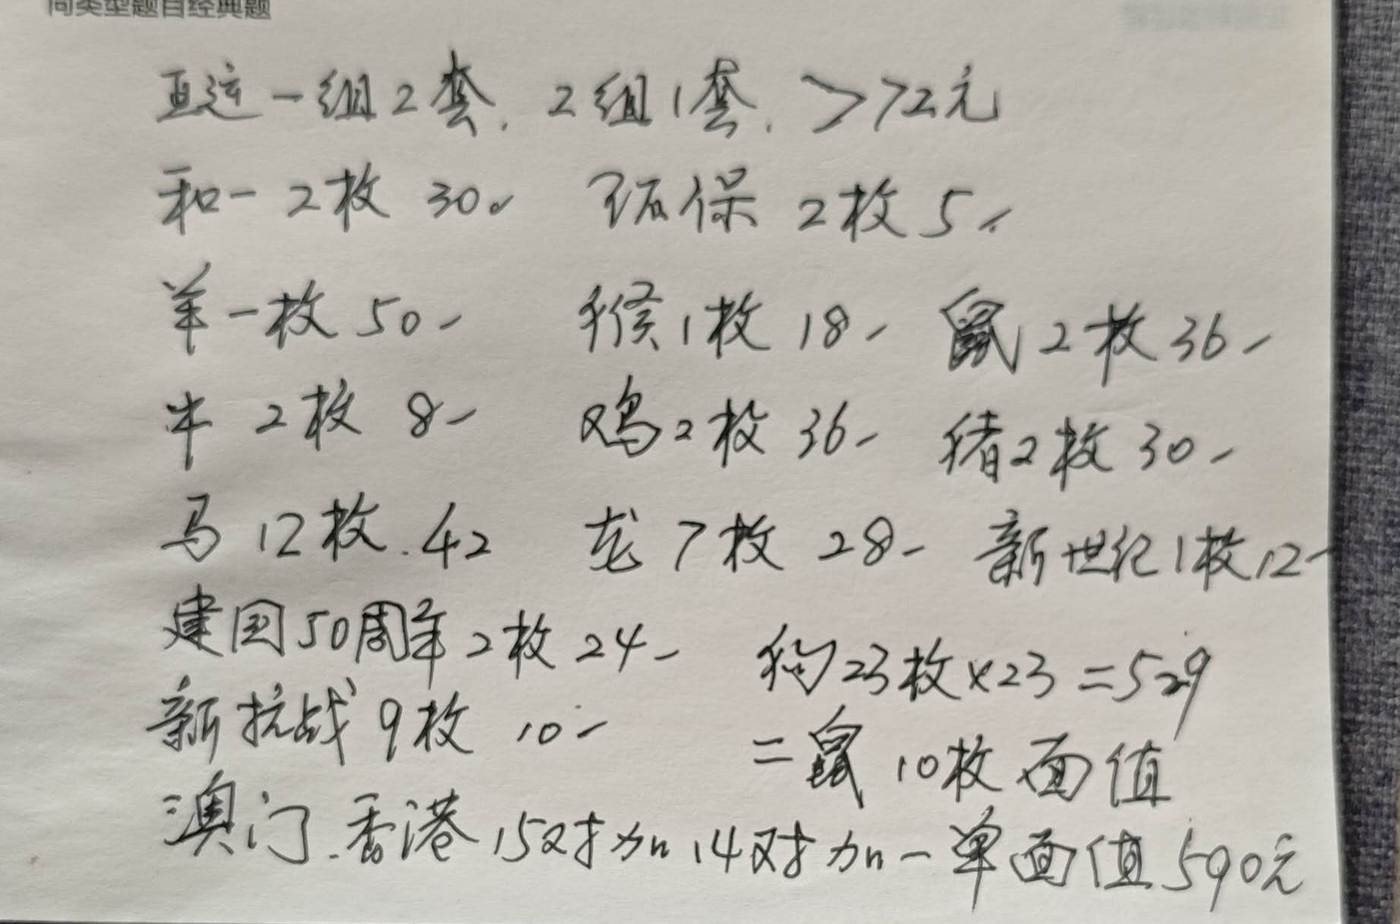 同类型题目经典题
亚运一组2套. 2组1套. >72元
和一 2枚 30. 环保 2枚 5.
羊一枚 50- 猴1枚 18- 鼠2枚 36-
牛 2枚 8- 鸡2枚 36- 猪2枚 30-
马 12枚.42 龙 7枚 28- 新世纪1枚12-
建国50周年2枚 24- 狗23枚×23=529
新抗战 9枚 10- 二鼠 10枚 面值
澳门.香港 15对加14对加一单面值590元